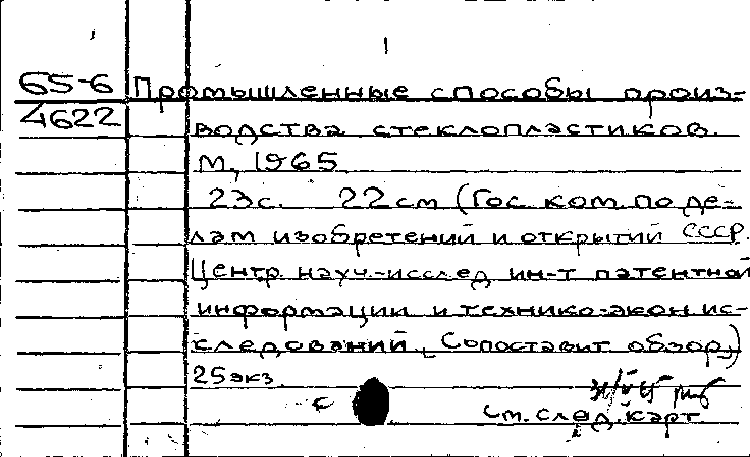 65-6 Промышленные способы произ-
4622 водства стеклопластиков.
М, 1965
23с. 22см (Гос. ком. по де-
лам изобретений и открытий СССР.
Центр. науч-исслед ин-т патентной
информации и технико-экон ис-
следований. Сопоставит обзор,)
25экз.
с
см. след. карт.